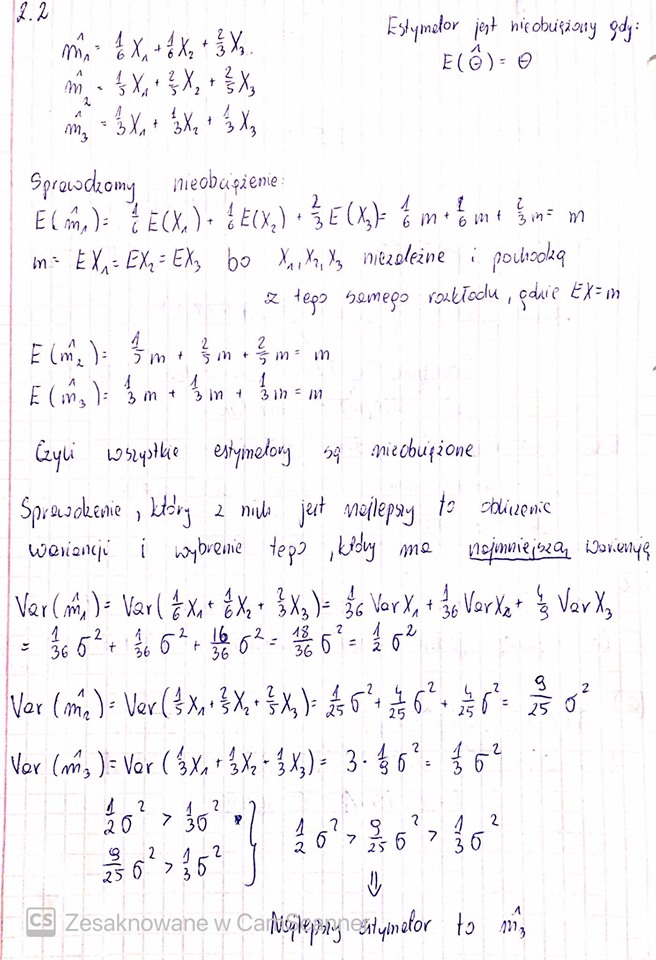 2.2
Estymator jest nieobciążony gdy:
E(Θ̂) = Θ
m̂₁ = 1/6 X₁ + 1/6 X₂ + 2/3 X₃.
m̂₂ = 1/5 X₁ + 2/5 X₂ + 2/5 X₃
m̂₃ = 1/3 X₁ + 1/3 X₂ + 1/3 X₃
Sprawdzamy nieobciążenie:
E(m̂₁) = 1/6 E(X₁) + 1/6 E(X₂) + 2/3 E(X₃) = 1/6 m + 1/6 m + 2/3 m = m
m = EX₁ = EX₂ = EX₃ bo X₁, X₂, X₃ niezależne i pochodzą
z tego samego rozkładu, gdzie EX = m
E(m̂₂) = 1/5 m + 2/5 m + 2/5 m = m
E(m̂₃) = 1/3 m + 1/3 m + 1/3 m = m
Czyli wszystkie estymatory są nieobciążone
Sprawdzenie, który z nich jest najlepszy to obliczenie
wariancji i wybranie tego, który ma najmniejszą wariancję
Var(m̂₁) = Var(1/6 X₁ + 1/6 X₂ + 2/3 X₃) = 1/36 Var X₁ + 1/36 Var X₂ + 4/9 Var X₃
= 1/36 σ² + 1/36 σ² + 16/36 σ² = 18/36 σ² = 1/2 σ²
Var(m̂₂) = Var(1/5 X₁ + 2/5 X₂ + 2/5 X₃) = 1/25 σ² + 4/25 σ² + 4/25 σ² = 9/25 σ²
Var(m̂₃) = Var(1/3 X₁ + 1/3 X₂ + 1/3 X₃) = 3 · 1/9 σ² = 1/3 σ²
1/2 σ² > 1/3 σ²
9/25 σ² > 1/3 σ²
} 1/2 σ² > 9/25 σ² > 1/3 σ²
⇓
Najlepszy estymator to m̂₃
CS Zeskanowane w CamScanner